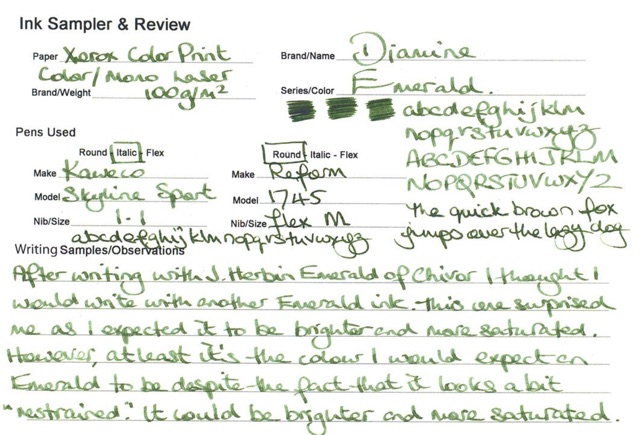 Ink Sampler & Review
Paper Xerox Color Print
Color/Mono Laser
Brand/Weight 100g/m²
Brand/Name Diamine
Series/Color Emerald.
abcdefghijklm
nopqrstuvwxyz
ABCDEFGHIJKLM
NOPQRSTUVWXYZ
the quick brown fox
jumps over the lazy dog
Pens Used
Round - Italic - Flex
Make Kaweco
Model Skyline Sport
Nib/Size 1.1
Round - Italic - Flex
Make Reform
Model 1745
Nib/Size flex M
abcdefghijklmnopqrstuvwxyz
Writing Samples/Observations
After writing with J. Herbin Emerald of Chivor I thought I
would write with another Emerald ink. This one surprised
me as I expected it to be brighter and more saturated.
However, at least it's the colour I would expect an
Emerald to be despite the fact that it looks a bit
"restrained". It could be brighter and more saturated.